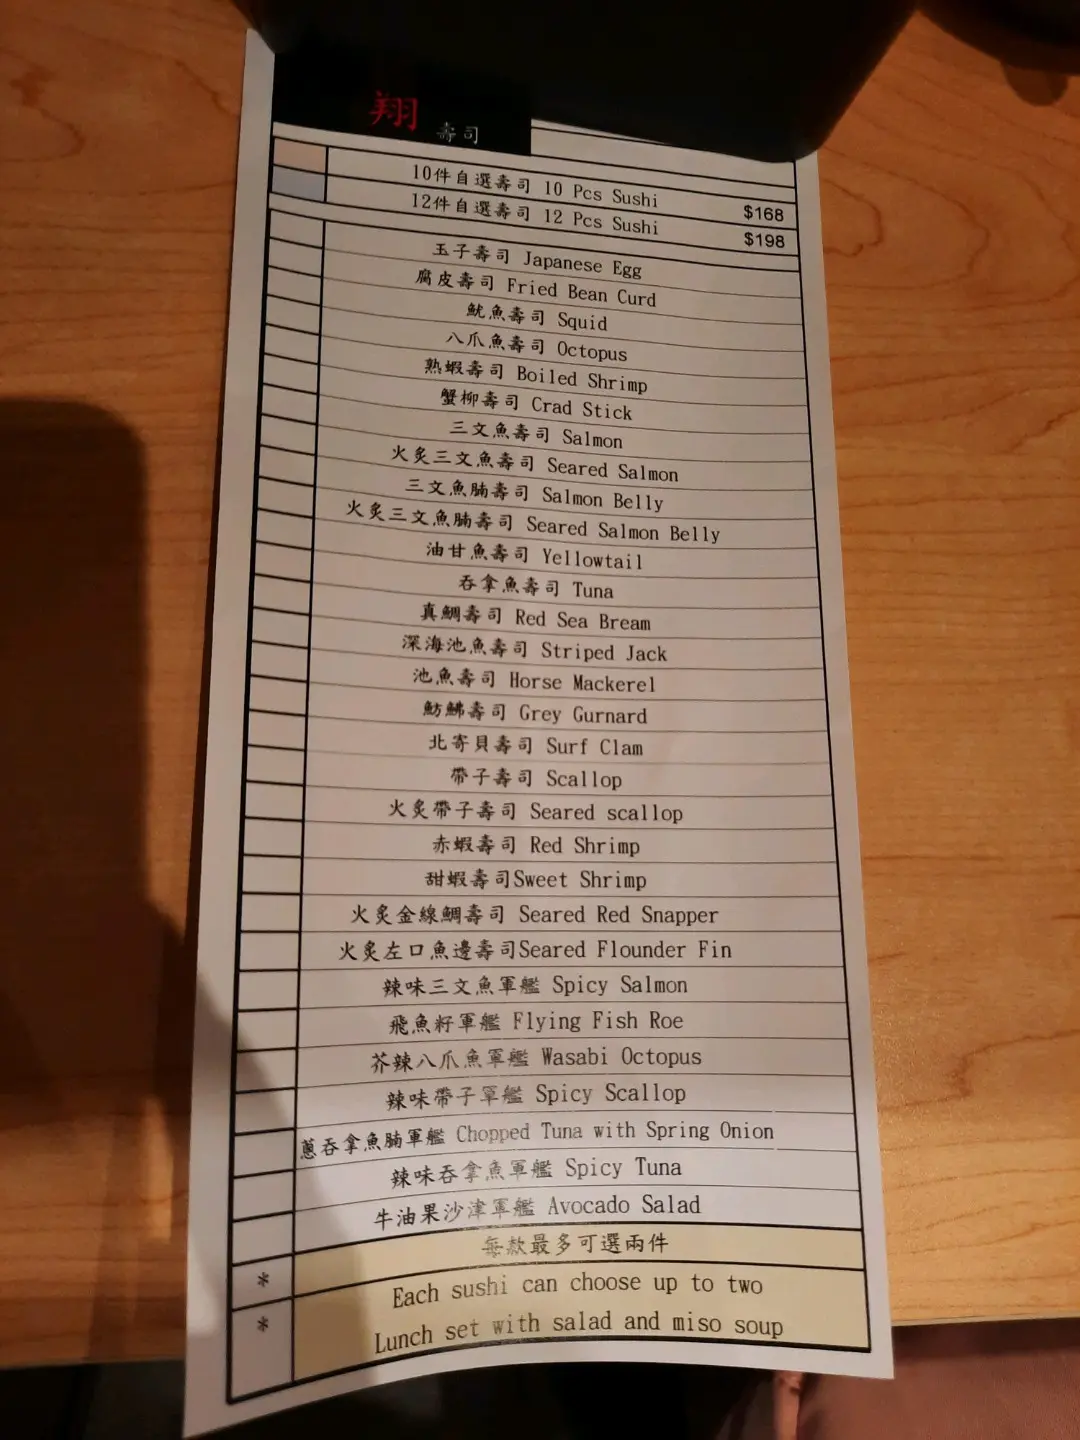 翔 壽司
10件自選壽司 10 Pcs Sushi $168
12件自選壽司 12 Pcs Sushi $198
玉子壽司 Japanese Egg
腐皮壽司 Fried Bean Curd
魷魚壽司 Squid
八爪魚壽司 Octopus
熟蝦壽司 Boiled Shrimp
蟹柳壽司 Crad Stick
三文魚壽司 Salmon
火炙三文魚壽司 Seared Salmon
三文魚腩壽司 Salmon Belly
火炙三文魚腩壽司 Seared Salmon Belly
油甘魚壽司 Yellowtail
吞拿魚壽司 Tuna
真鯛壽司 Red Sea Bream
深海池魚壽司 Striped Jack
池魚壽司 Horse Mackerel
魴鮄壽司 Grey Gurnard
北寄貝壽司 Surf Clam
帶子壽司 Scallop
火炙帶子壽司 Seared scallop
赤蝦壽司 Red Shrimp
甜蝦壽司Sweet Shrimp
火炙金線鯛壽司 Seared Red Snapper
火炙左口魚邊壽司Seared Flounder Fin
辣味三文魚軍艦 Spicy Salmon
飛魚籽軍艦 Flying Fish Roe
芥辣八爪魚軍艦 Wasabi Octopus
辣味帶子軍艦 Spicy Scallop
蔥吞拿魚腩軍艦 Chopped Tuna with Spring Onion
辣味吞拿魚軍艦 Spicy Tuna
牛油果沙津軍艦 Avocado Salad
每款最多可選兩件
* Each sushi can choose up to two
* Lunch set with salad and miso soup